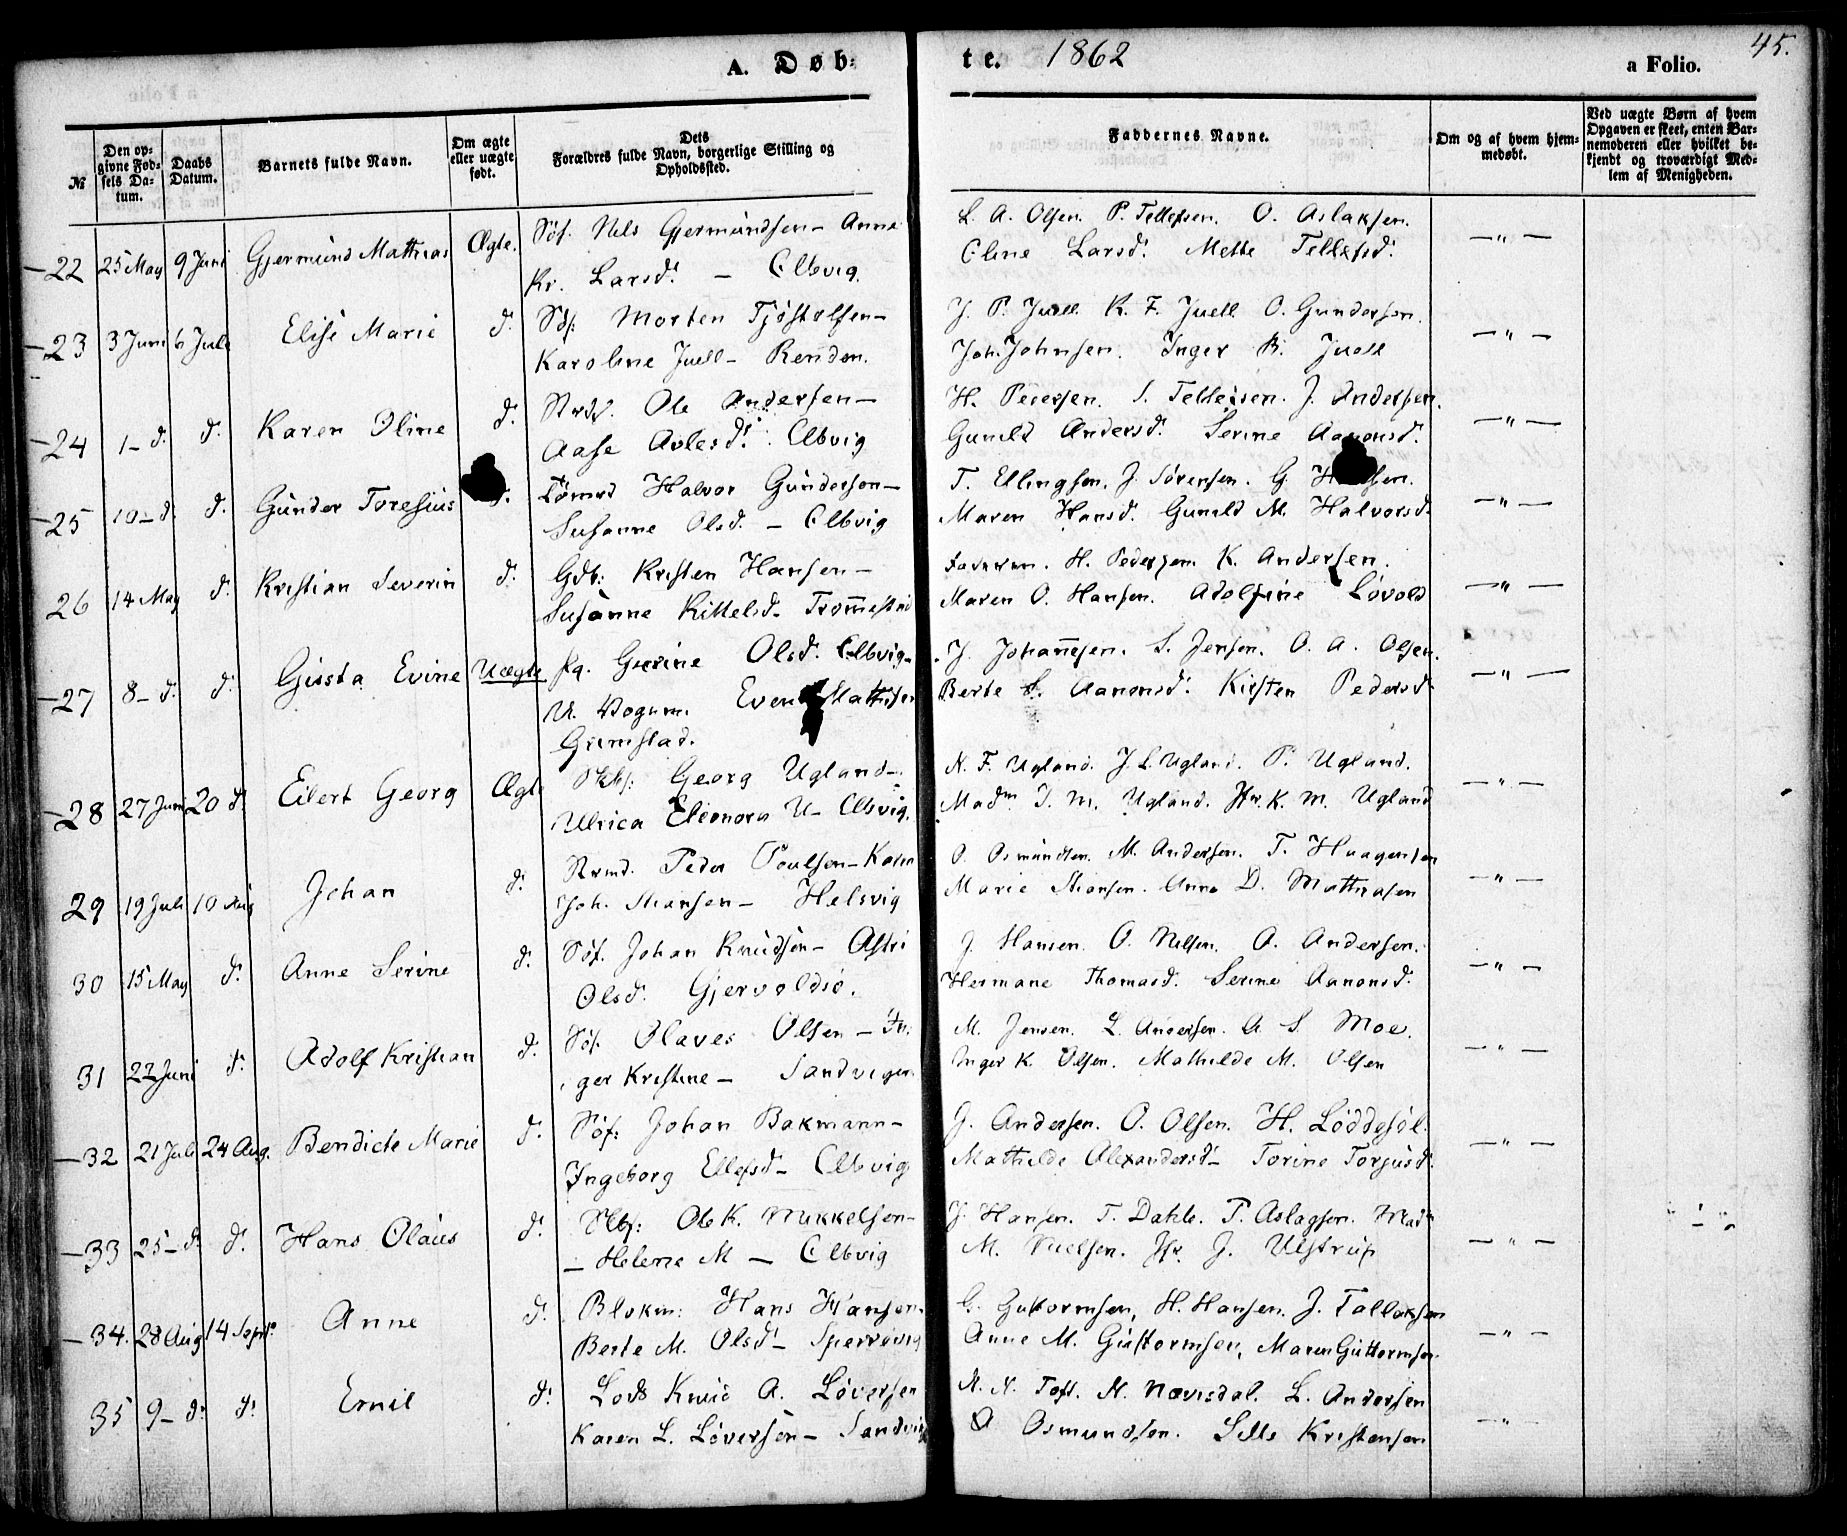 A. Døb-
te. 1862
a Folio.
45.
№
Den op-
givne Fød-
sels Da-
tum.
Daabs
Datum.
Barnets fulde Navn.
Om ægte
eller uægte
født.
Dets
Forældres fulde Navn, borgerlige Stilling og
Opholdssted.
Faddernes Navne.
Om og af hvem hjem-
medøbt.
Ved uægte Børn af hvem
Opgaven er skeet, enten Bar-
nemoderen eller hvilket be-
kjendt og troværdigt Med-
lem af Menigheden.
22 25 May 9 Juni Gjermund Mathias Ægte. Søf. Nels Gjermundsen - Anne
Kr. Larsd. - Elbvig.
L. A. Olsen. P. Tellefsen. O. Aslaksen. — " —
Eline Larsd. Mette Tellefsd.
23 3 Juni 6 Juli Elise Marie d. Søf. Morten Tjøstolfsen -
Karoline Juell - Renden.
J. P. Juell K. F. Juell O. Gundersen. — " —
Joh. Johnsen. Inger B. Juell
24 1 - d. d. Karen Oline d. Ole Andersen -
Aase Avlesd. Elbvig
H. Pedersen. S. Tellefsen. J. Andersen. — " —
Gunild Andersd. Serine Aanonsd.
25 10 - d. d. Gunder Toresius d. Tømrd Halvor Gunderson -
Susanne Olsd. - Elbvig
T. Ellingsen. J. Sørensen. G. — " —
Maren Hansd. Gunild M. Halvorsd.
26 14 May d. Kristian Severin d. Gdb: Kristen Hansen -
Susanne Kittelsd - Tromestad
Faderen. H. Pedersen. K. Andersen. — " —
Maren O. Hansen. Adolfine Løvold
27 8 - d. d. Gusta Evine Uægte Pg. Gurine Olsd. Elbvig -
U. Even Mathisen
Grimstad.
J. Johannesen. S. Jensen. O. A. Olsen. — " —
Berte S. Aanonsd. Kirsten Pedersd.
28 27 Juni 20 d. Eilert Georg Ægte Skbf: Georg Ugland -
Ulrica Eleonora U - Elbvig.
N. F. Ugland. J. L. Ugland. P. Ugland. — " —
Madm J. M. Ugland. Jfr. K. M. Ugland
29 19 Juli 10 Aug Johan d. Peder Poulsen - Karen
Joh. - Helsvig
O. Osmundsen. M. Andersen. T. Huagensen — " —
Marie Anne D. Mathiasen
30 15 May d. Anne Serine d. Søf. Johan Knudsen - Astri
Olsd. Gjervoldsø.
J. Hansen. O. Nelsen. A. Andersen. — " —
Hermane Thomasd. Serine Aanonsd.
31 22 Juni d. Adolf Kristian d. Søf. Olaves Olsen - In-
ger Kristine - Sandvigen
M. Jensen. L. Andersen. A. S. Moe. — " —
Inger K. Olsen. Mathilde M. Olsen
32 21 Juli 24 Aug. Bendicte Marie d. Søf: Johan Bakmann -
Ingeborg Ellefsd - Elbvig
J. Andersen. O. Olsen. H. Løddesøl. — " —
Mathilde Alexandersd - Torine Torjusd.
33 25 - d. d. Hans Olaus d. Skbf: Ole K. Mikkelsen -
- Helene M - Elbvig
J. Hansen. T. Dahle. P. Aslagsen. Madm — " —
M. Nielsen. Jfr. J. Ulstrup
34. 28 Aug. 14 Sept. Anne d. Blokm: Hans Hansen -
Berte M. Olsd - Sperrevig
G. Guttormsen, H. Hansen. J. Tallaksen — " —
Anne M. Guttormsen, Maren Guttormsen.
35 9 - d. d. Emil d. Lods Knud A. Løversen
Karen L. Løversen - Sandvig
N. N. Toft. N. Nævisdal. L. Andersen — " —
A Osmundsen. Sille Kristensen